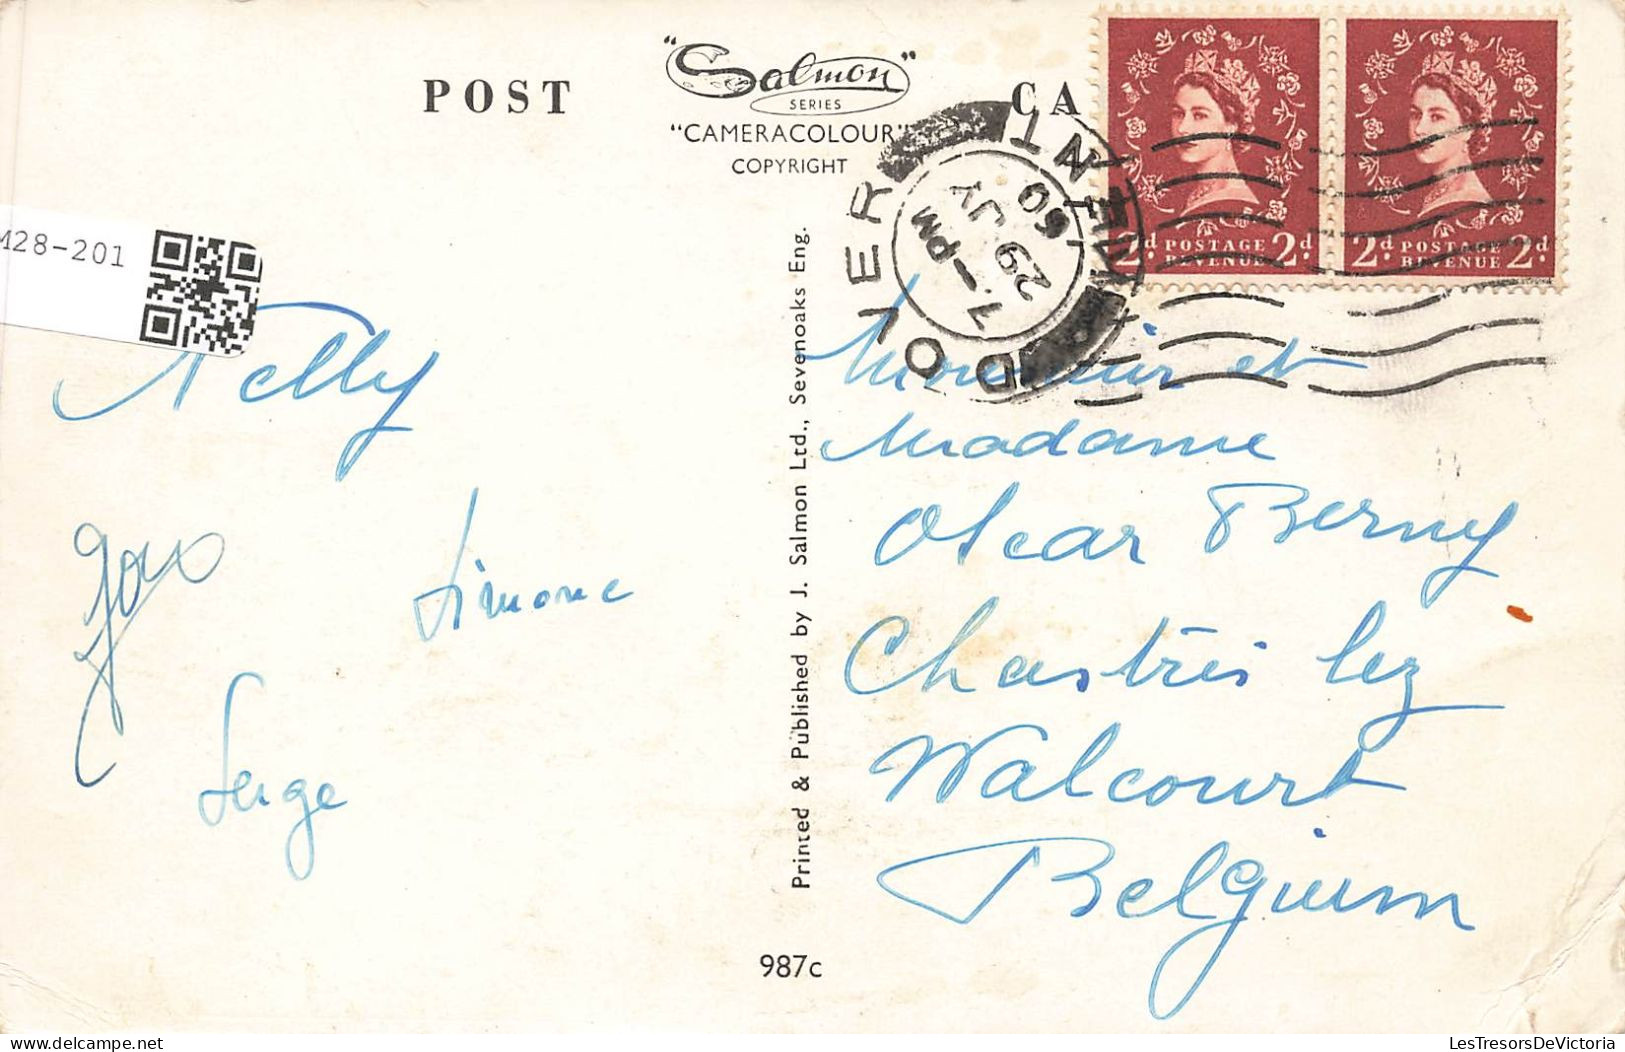 POST CA
"Salmon"
SERIES
"CAMERACOLOUR"
COPYRIGHT
M28-201
DOVER KENT
7 - PM
29 JY
60
2d POSTAGE 2d
REVENUE
2d POSTAGE 2d
REVENUE
Nelly
Simone
Serge
Printed & Published by J. Salmon Ltd., Sevenoaks Eng.
Monsieur et
Madame
Oscar Berny
Chastrès lez
Walcourt
Belgium
987c
Delcampe.net
LesTresorsDeVictoria